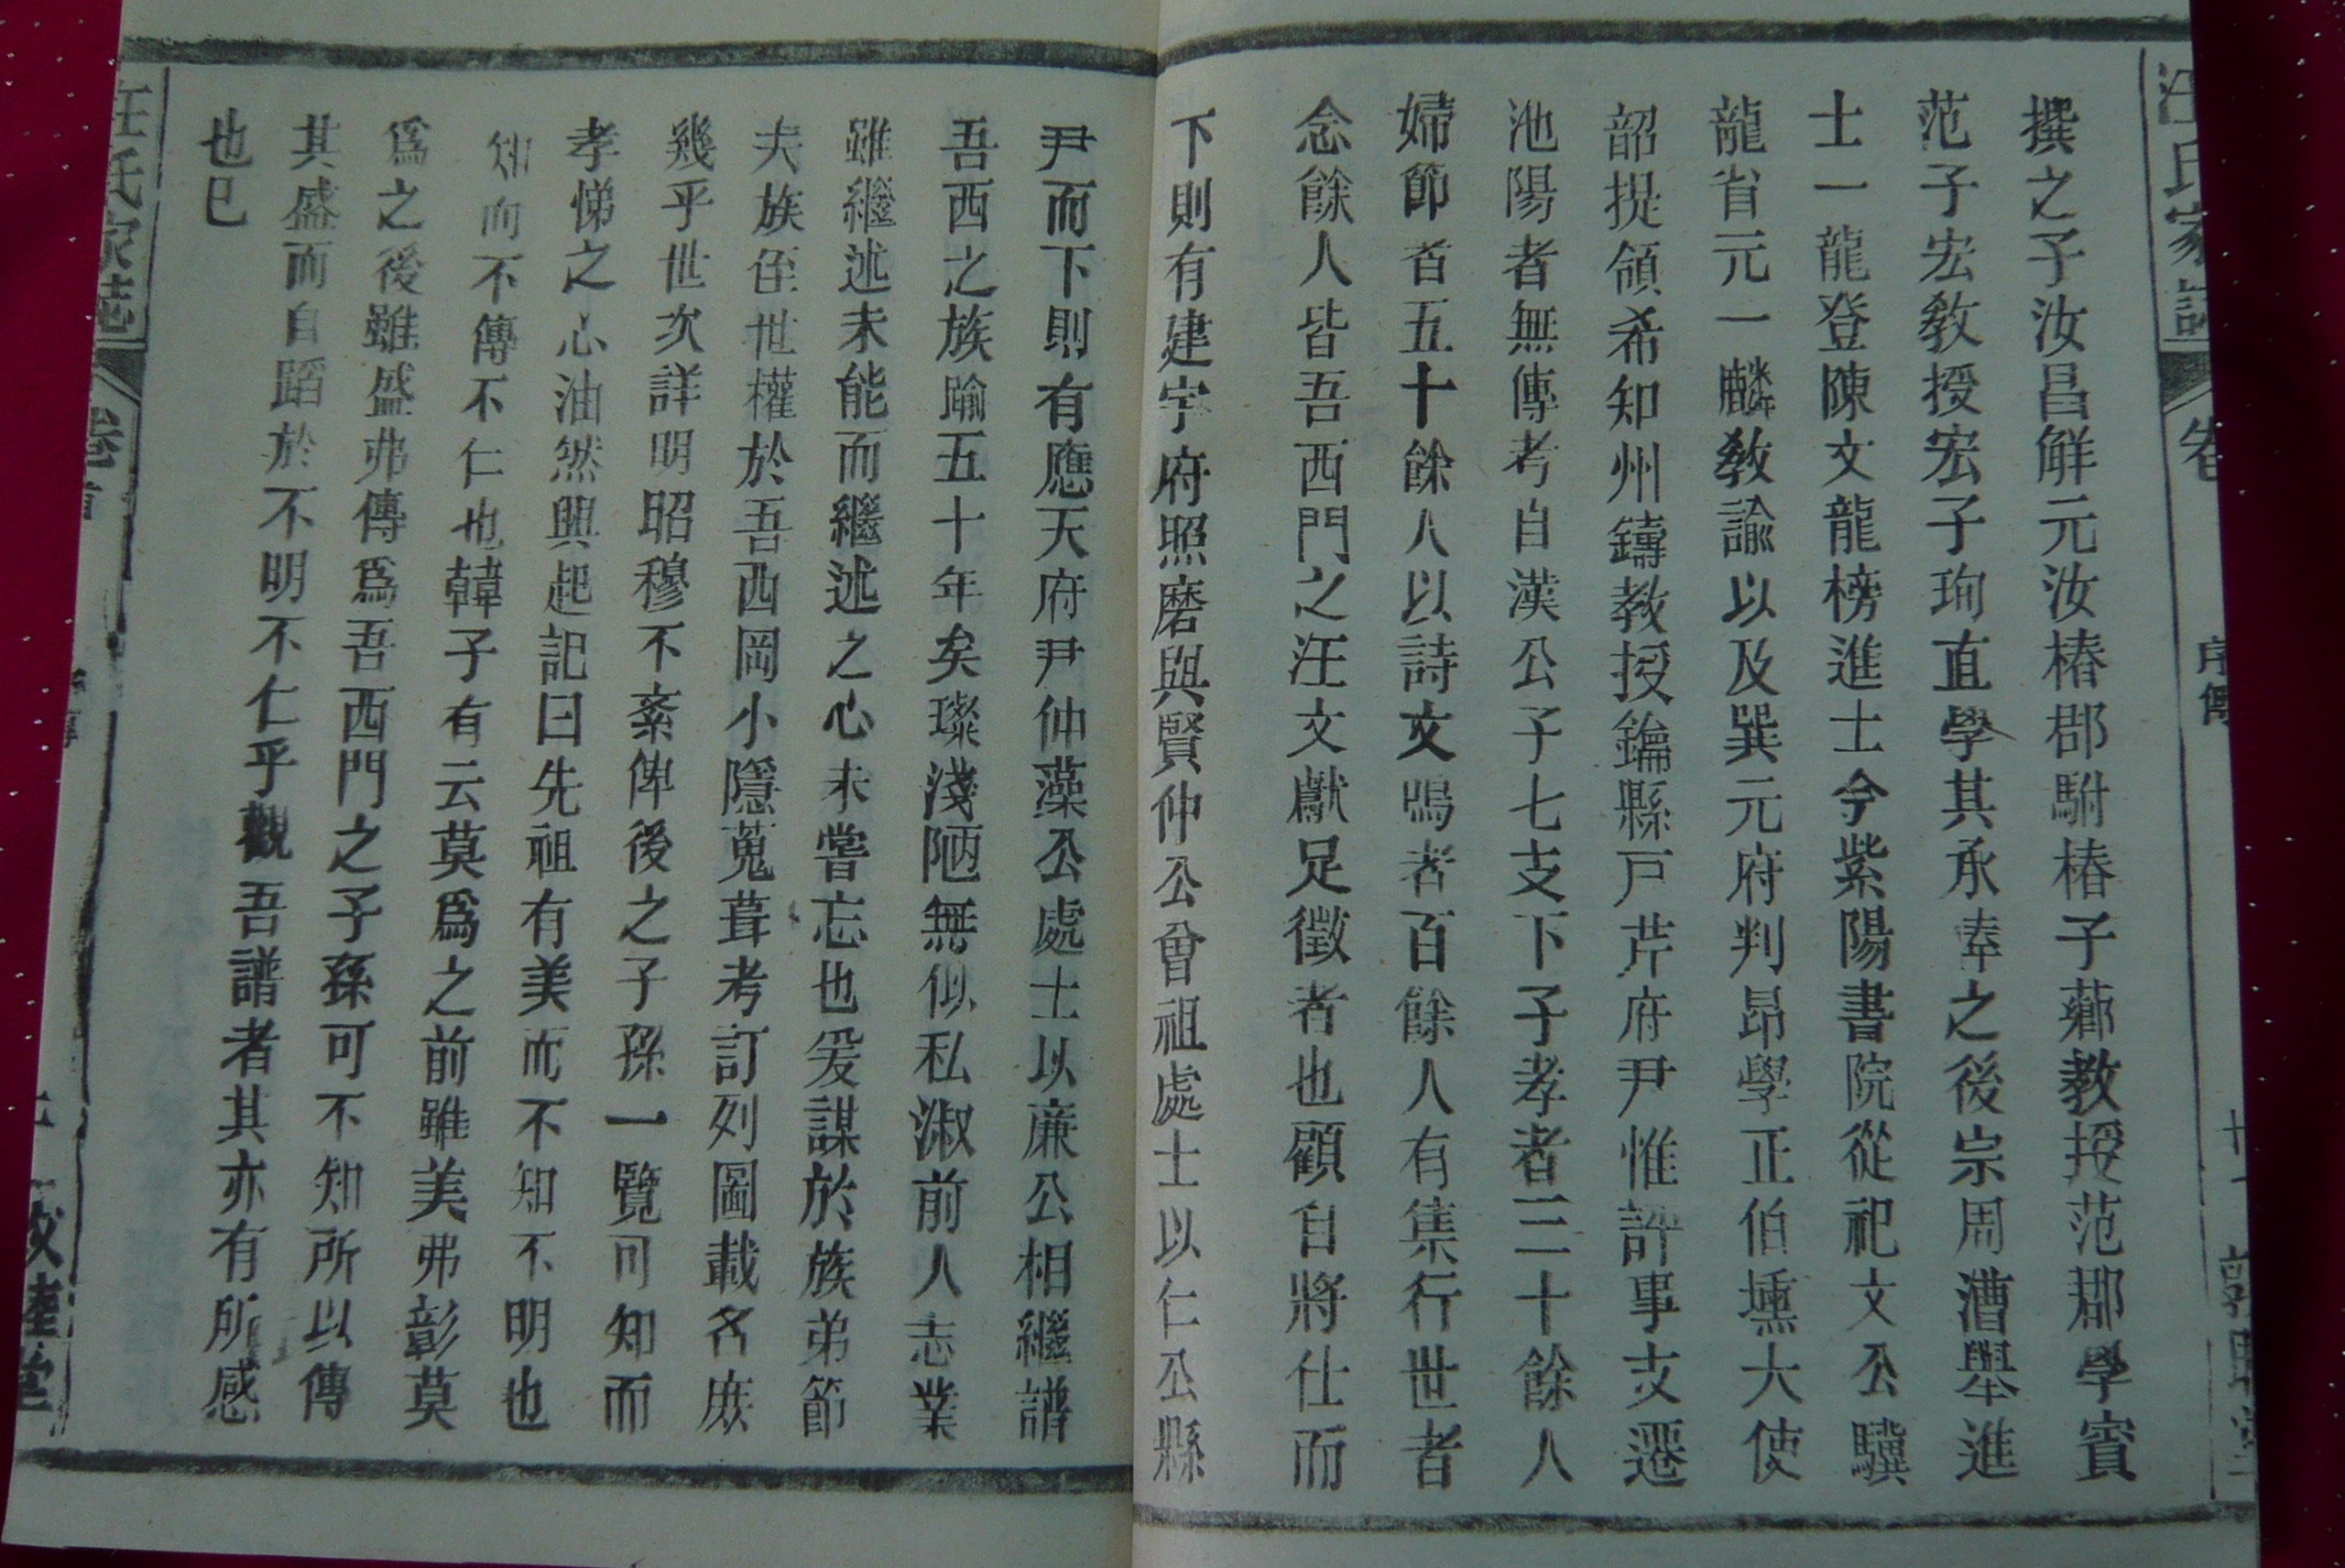 汪氏家誌 卷 序傳
撰之子汝昌解元汝椿郡駙椿子薌教授范郡學賓
范子宏教授宏子珣直學其承奉之後宗周漕舉進
士一龍登陳文龍榜進士今紫陽書院從祀文公驥
龍省元一麟教諭以及巽元府判昂學正伯壎大使
韶提領希知州鑄教授鑰縣戸芹府尹惟評事支遷
池陽者無傳考自漢公子七支下子孝者三十餘人
婦節者五十餘人以詩文鳴者百餘人有集行世者
念餘人皆吾西門之汪文獻足徵者也顧自將仕而
下則有建宇府照磨與賢仲公曾祖處士以仁公縣
尹而下則有應天府尹仲藻公處士以廉公相繼譜
吾西之族踰五十年矣璨淺陋無似私淑前人志業
雖繼述未能而繼述之心未嘗忘也爰謀於族弟節
夫族侄世權於吾西岡小隱蒐葺考訂列圖載名庶
幾乎世次詳明昭穆不紊俾後之子孫一覽可知而
孝悌之心油然興起記曰先祖有美而不知不明也
知而不傳不仁也韓子有云莫爲之前雖美弗彰莫
爲之後雖盛弗傳爲吾西門之子孫可不知所以傳
其盛而自蹈於不明不仁乎觀吾譜者其亦有所感
也已
汪氏家誌 卷首